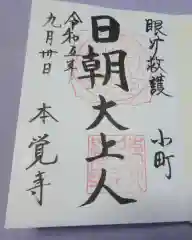 眼病救護
小町
日朝大上人
本覚寺
令和五年
九月卅日